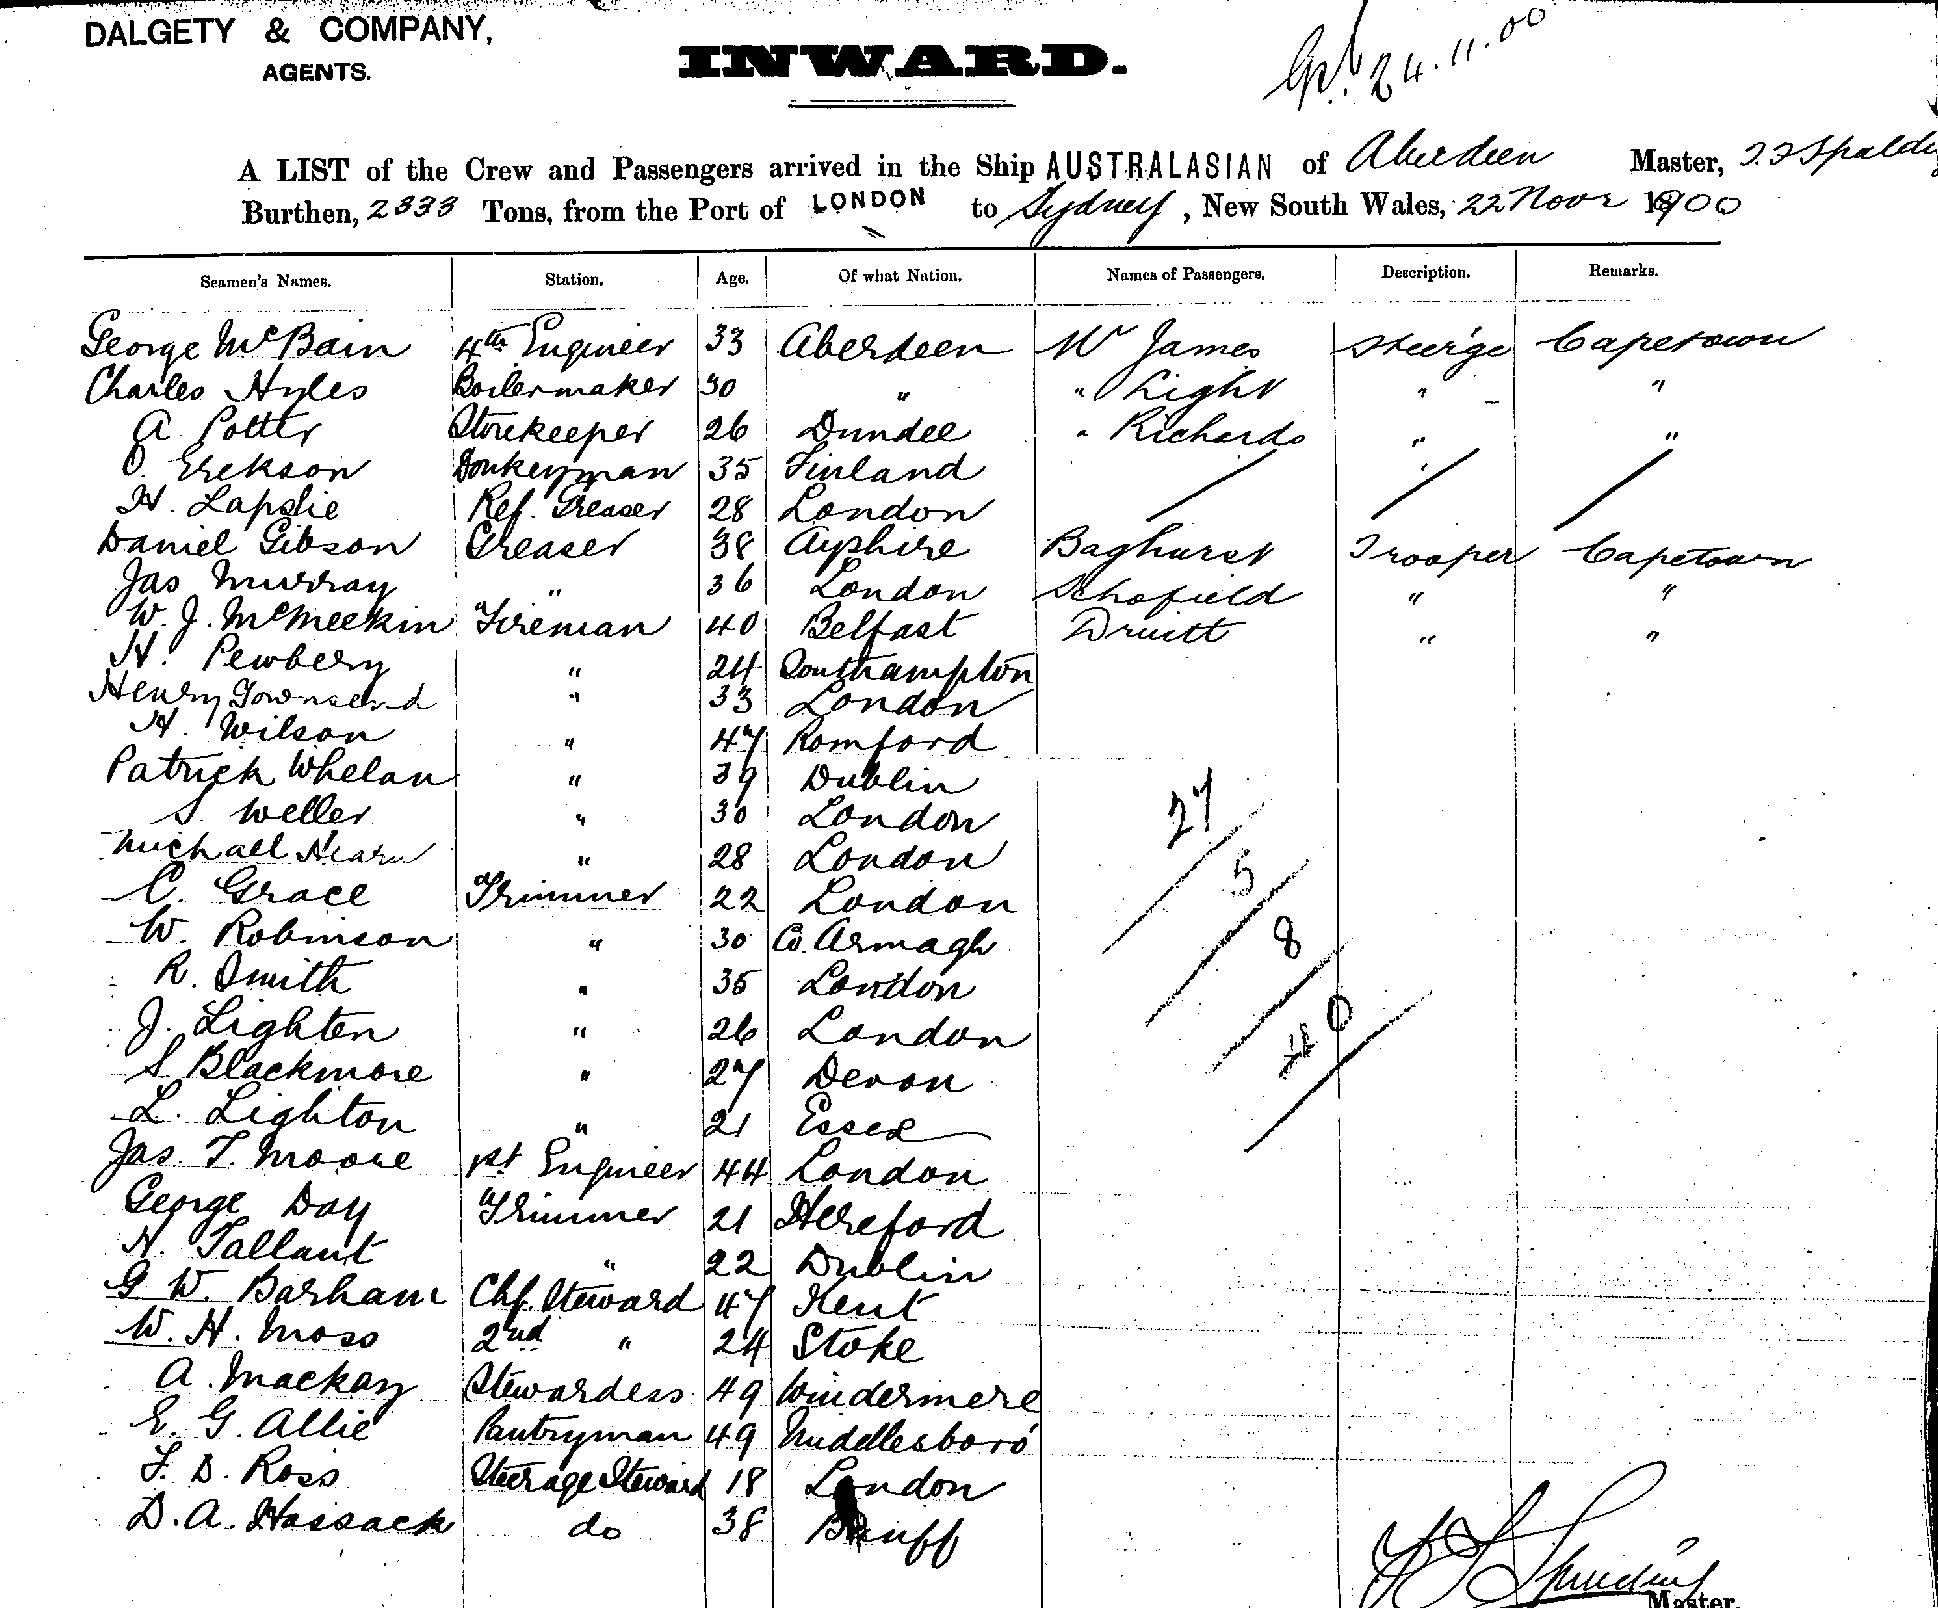 DALGETY & COMPANY,
AGENTS.
INWARD.
24.11.00
A LIST of the Crew and Passengers arrived in the Ship AUSTRALASIAN of Aberdeen Master,
Burthen, 2333 Tons, from the Port of LONDON to Sydney, New South Wales, 22 Novr 1900
Seamen's Names. Station. Age. Of what Nation. Names of Passengers. Description. Remarks.
George McBain 4th Engineer 33 Aberdeen Mr James Steer'ge Capetown
Charles Hyles Boilermaker 30 " " Light " "
A. Potter Storekeeper 26 Dundee " Richards " "
O. Erekson Donkeyman 35 Finland
H. Lapslie Ref. Greaser 28 London
Daniel Gibson Greaser 38 Ayshire Baghurst Trooper Capetown
Jas Murray " 36 London Schofield " "
W. J. McMeekin Fireman 40 Belfast Druitt " "
H. Pewbery " 24 Southampton
Henry Townsend " 33 London
H. Wilson " 47 Romford
Patrick Whelan " 39 Dublin
S. Weller " 30 London
Michael Hearn " 28 London
C. Grace Trimmer 22 London
W. Robinson " 30 Co. Armagh
R. Smith " 35 London
J. Lighten " 26 London
S Blackmore " 27 Devon
L. Lighton " 21 Essex
Jas. T. Moore 1st Engineer 44 London
George Day Trimmer 21 Hereford
H. Tallant " 22 Dublin
G W. Barham Chf. Steward 47 Kent
W. H. Moss 2nd " 24 Stoke
A. Mackay Stewardess 49 Windermere
E. G. Allie Pantryman 49 Middlesboro'
F. D. Ross Steerage Steward 18 London
D. A. Hossack do 38 Banff
27
5
8
40
Master.